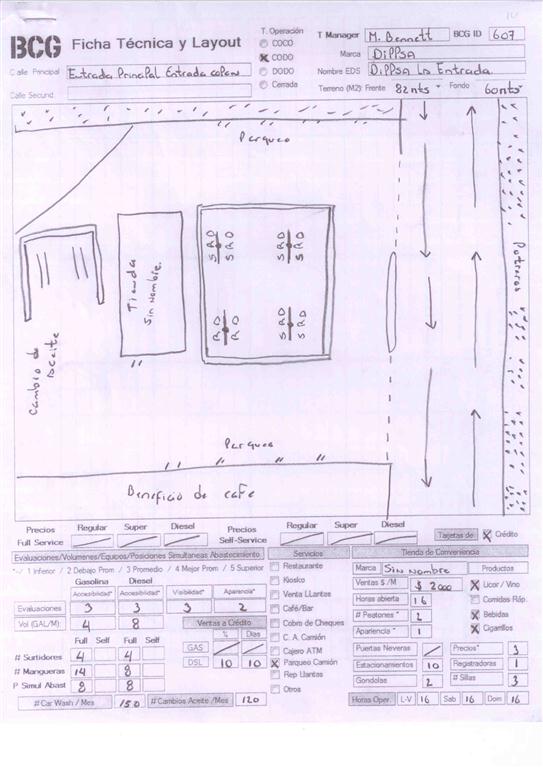 BCG Ficha Técnica y Layout
T. Operación
COCO
CODO
DODO
Cerrada
T Manager M. Bennett BCG ID 607
Marca DiPPSA
Nombre EDS DiPPSA La Entrada
Terreno (M2): Frente 82mts Fondo 60mts
Calle Principal Entrada Principal Entrada copan
Calle Secund.
Parqueo
Tienda
Sin Nombre.
S R D S R D
S R D S R D
R D S R D
R D S R D
Cambio de
Aceite
Potreros
Parqueo
Beneficio de cafe
Precios Regular Super Diesel Precios Regular Super Diesel
Full Service Self-Service
Tarjetas de X Crédito
Evaluaciones/Volumenes/Equipos/Posiciones Simultaneas Abastecimiento
*-/ 1 Inferior / 2 Debajo Prom / 3 Promedio / 4 Mejor Prom / 5 Superior
Gasolina Diesel
Accesibilidad* Accesibilidad* Visibilidad* Apariencia*
Evaluaciones 3 3 3 2
Vol (GAL/M): 4 8
Full Self Full Self
# Surtidores 4 4
# Mangueras 14 8
P Simul Abast 8 8
# Car Wash / Mes 150 # Cambios Aceite /Mes 120
Ventas a Crédito
% Dias
GAS
DSL 10 10
Servicios
Restaurante
Kiosko
Venta Llantas
Café/Bar
Cobro de Cheques
C. A. Camión
Cajero ATM
X Parqueo Camión
Rep Llantas
Otros
Tienda de Conveniencia
Marca Sin Nombre Productos
Ventas $ /M $ 2000 X Licor / Vino
Horas abierta 16 Comidas Ráp.
# Peatones * 2 X Bebidas
Apariencia * 1 X Cigarrillos
Puertas Neveras Precios* 3
Estacionamientos 10 Registradoras 1
Gondolas 2 # Sillas 3
Horas Oper. L-V 16 Sab 16 Dom 16